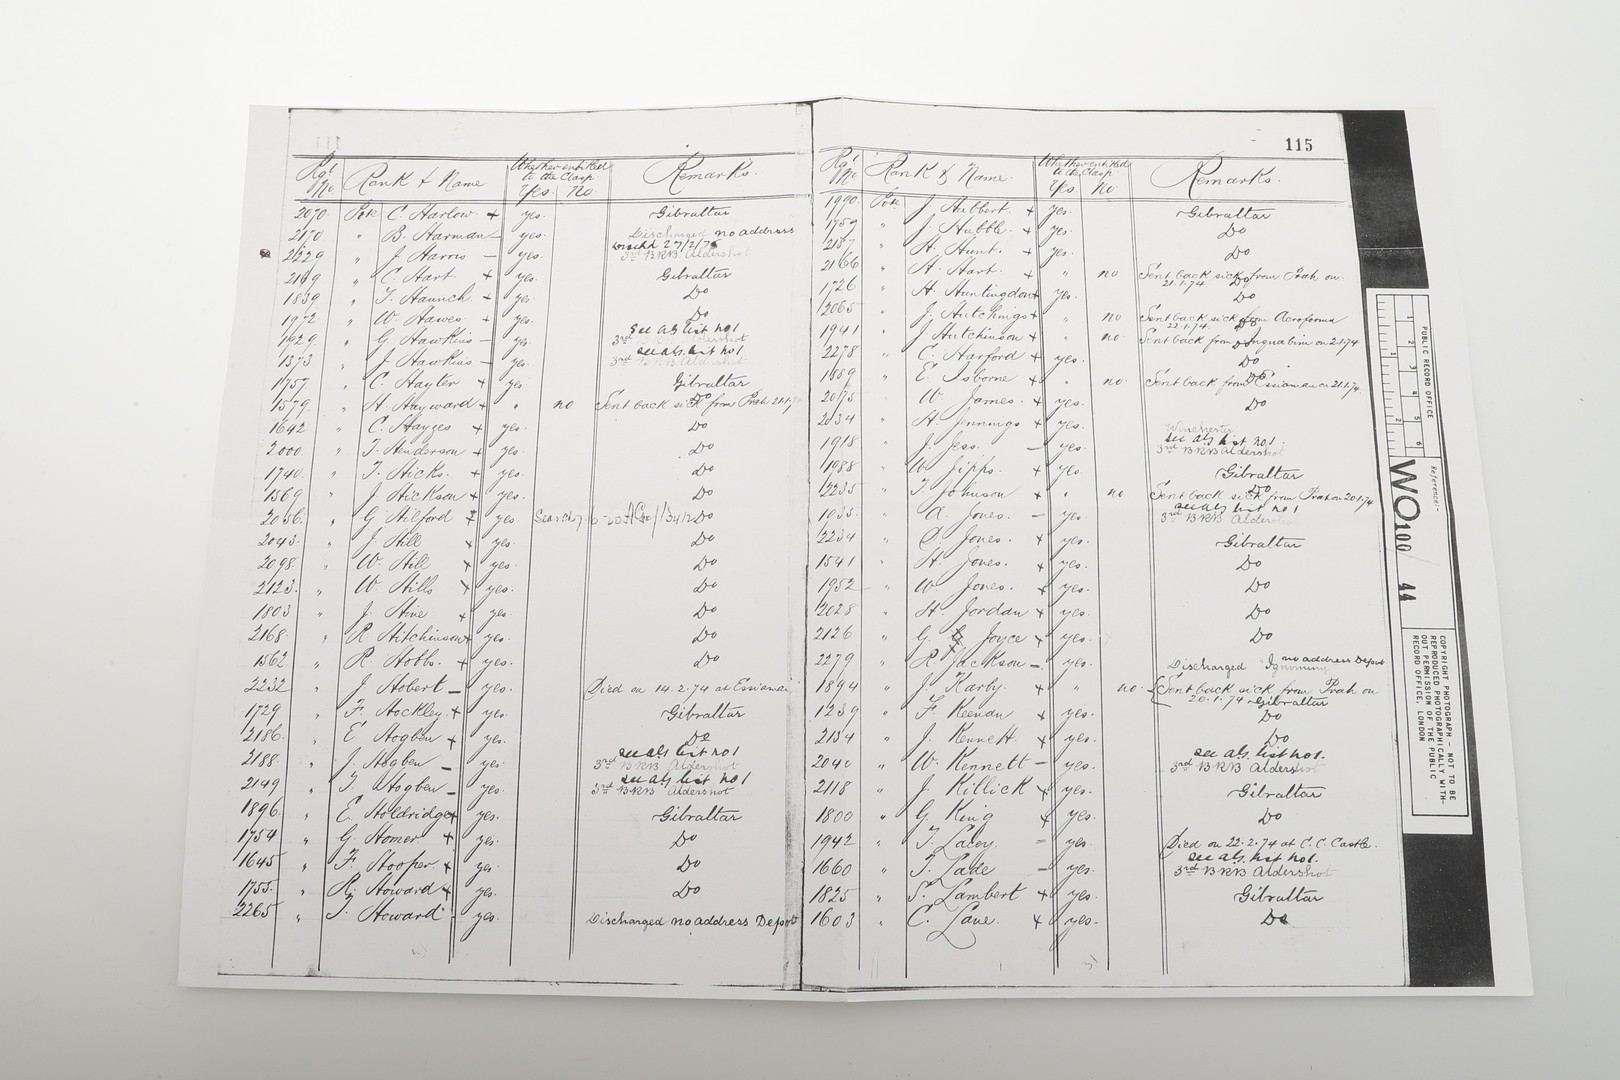 Rgl No Rank & Name Whether entitled to the Clasp Yes. No. Remarks.
2070 Pte C. Harlow + yes. Gibraltar
2170 " B. Harman - yes. Discharged no address
2229 " J. Harris - yes. 27/2/75 3rd B RB Aldershot
2169 " C. Hart + yes. Gibraltar
1839 " T. Haunch + yes. Do
1972 " W. Hawes + yes. Do
1929 " G. Hawkins - yes. see a/s list no 1 3rd
1373 " J. Hawkins - yes. see a/s list no 1 3rd B RB Aldershot
1757 " C. Hayter + yes. Gibraltar
1579 " H. Hayward + " no Do Sent back sick from Prah 21.1.7
1642 " C. Hayzes + yes. Do
2000 " T. Henderson + yes. Do
1740 " T. Hicks. + yes. Do
1569 " J. Hickson + yes. Do
2056 " G. Hilford + yes. Do
2043 " J. Hill + yes. Do
2098 " W. Hill + yes. Do
2123 " W. Hills + yes. Do
1803 " J. Hine + yes. Do
2168 " R. Hitchinson + yes. Do
1562 " R. Hobbs. + yes. Do
2232 " J. Hobert - yes. Died on 14.2.74 at Essiaman
1729 " F. Hockley. + yes. Gibraltar
2186 " E. Hogben + yes. Do
2188 " J. Hogben - yes. see a/s list no 1 3rd B RB Aldershot
2149 " T. Hogben - yes. see a/s list no 1 3rd B RB Aldershot
1896 " E. Holdridge + yes. Gibraltar
1754 " G. Homer + yes. Do
1645 " F. Hooper + yes. Do
1755 " R. Howard + yes. Do
2265 " T. Howard - yes. Discharged no address Depot
115
Rgl No Rank & Name. Whether entitled to the Clasp Yes. No Remarks.
1990 Pte J. Hubbert + yes. Gibraltar
1759 " J. Hubble. + yes. Do
2157 " H. Hunt. + yes. Do
2166 " H. Hart. + " no Sent back sick from Prah on 21.1.74 Do
1726 " H. Huntingdon + yes. Do
2065 " J. Hutchings + " no Sent back sick from Acrofooma 22.1.74. Do
1941 " J. Hutchinson + " no Sent back from on 2.1.74 Do
2278 " C. Harford + yes. Do
1889 " E. Isborne + " no. Do Sent back from Essiaman on 21.1.74
2075 " W. James. + yes. Do
2034 " H. Jennings + yes. Winchester
1918 " J. Jess. - yes. see a/s list no 1. 3rd B RB Aldershot
1988 " W. Jipps. + yes. Gibraltar
2235 " T. Johnson + " no Do Sent back sick from Prah on 20.1.74
1935 " A. Jones. - yes. see a/s list no 1 3rd B RB Aldershot
2234 " C. Jones. + yes. Gibraltar
1541 " H. Jones. + yes. Do
1952 " W. Jones. + yes. Do
2028 " H. Jordan + yes. Do
2126 " G. Joyce + yes. Do
2279 " R. Jackson - yes. Discharged Ignominy no address Depot
1894 " J. Karby. + " no. Sent back sick from Prah on 20.1.74 Gibraltar
1239 " F. Keenan + yes. Do
2134 " J. Kennett. + yes. Do
2040 " W. Kennett - yes. see a/s list no 1. 3rd B RB Aldershot
2118 " J. Killick + yes. Gibraltar
1800 " G. King + yes. Do
1942 " T. Lacey. - yes. Died on 22.2.74 at C.C. Castle.
1660 " T. Lade - yes. see a/s list no 1. 3rd B RB Aldershot
1825 " S. Lambert + yes. Gibraltar
1603 " C. Lane. + yes. Do
PUBLIC RECORD OFFICE
1 2 3 4 5 6
1 2
Reference:-
WO 100 / 44
COPYRIGHT PHOTOGRAPH - NOT TO BE
REPRODUCED PHOTOGRAPHICALLY WITH-
OUT PERMISSION OF THE PUBLIC
RECORD OFFICE, LONDON